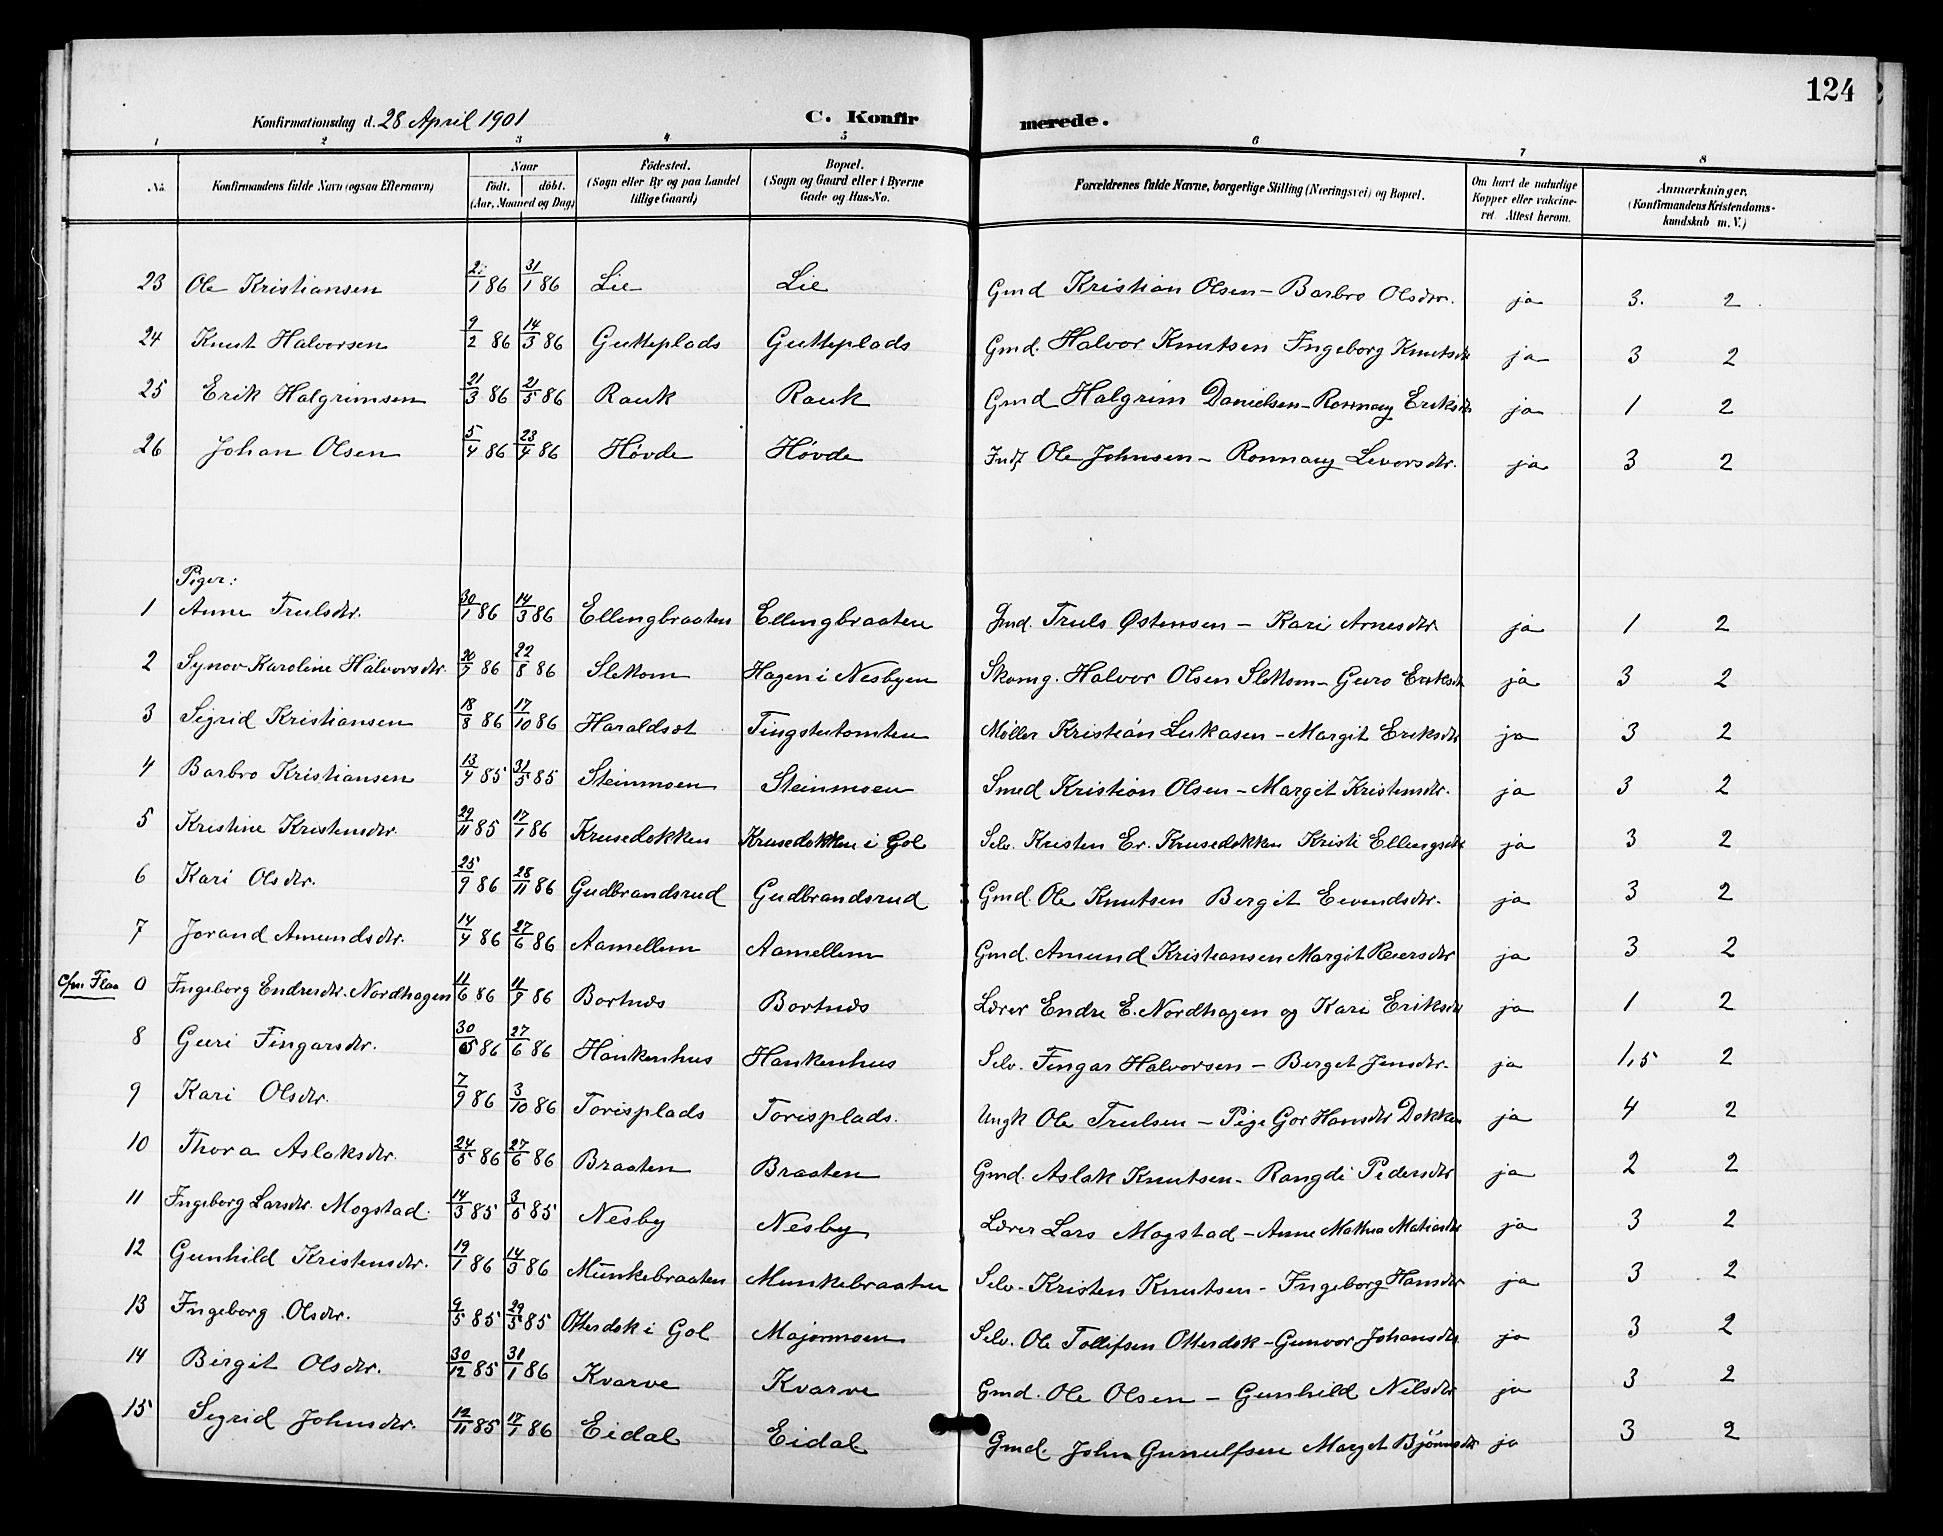 124
Konfirmationsdag d. 28 April 1901
C. Konfirmerede.
1 2 3 4 5 6 7 8
No. Konfirmandens fulde Navn (ogsaa Efternavn) Naar født. døbt. (Aar, Maaned og Dag) Fødested. (Sogn eller By og paa Landet tillige Gaard) Bopæl. (Sogn og Gaard eller i Byerne Gade og Hus-No. Forældrenes fulde Navne, borgerlige Stilling (Næringsvei) og Bopæl. Om havt de naturlige Kopper eller vakcineret. Attest herom. Anmærkninger. (Konfirmandens Kristendomskundskab m. V.)
23 Ole Kristiansen /1 86 31/1 86 Lie Lie Gmd Kristian Olsen - Barbro Olsdtr. ja 3. 2
24 Knut Halvorsen 9/2 86 14/3 86 Gutteplads Gutteplads Gmd. Halvor Knutsen Ingeborg Knutsdtr ja 3 2
25 Erik Halgrimsen 21/3 86 21/5 86 Rauk Rauk Gmd Halgrim Danielsen - Ronnaug Eriksdtr ja 1 2
26 Johan Olsen 5/4 86 23/4 86 Høvde Høvde Indf Ole Johnsen - Ronnaug Levorsdtr. ja 3 2
Piger:
1 Anne Trulsdtr. 30/1 86 14/3 86 Ellengbraaten Ellengbraaten Gmd. Truls Østensen - Kari Arnesdtr. ja 1 2
2 Synov Karoline Halvorsdtr. 20/7 86 22/8 86 Slettom Hagen i Nesbyen Skomg. Halvor Olsen Slettom - Guro Eriksdtr ja 3 2
3 Sigrid Kristiansen 18/8 86 17/10 86 Haraldset Tingstutomten Møller Kristian Lukasen - Margit Eriksdtr ja 3 2
4 Barbro Kristiansen 13/4 85 31/5 85 Steinmoen Steinmoen Smed Kristian Olsen - Margit Kristensdtr. ja 3 2
5 Kristine Kristensdtr. 29/11 85 17/1 86 Krusedokken Krusedokken i Gol Selv. Kristen Er. Krusedokken Kristi Ellingsdtr ja 3 2
6 Kari Olsdtr. 25/9 86 28/11 86 Gudbrandsrud Gudbrandsrud Gmd. Ole Knutsen Bergit Eivendsdtr. ja 3 2
7 Jorand Amundsdtr. 14/4 86 27/6 86 Aamellem Aamellem Gmd. Amund Kristiansen Margit Reiersdtr ja 3 2
Flaa 0 Ingeborg Endresdtr. Nordhagen 11/6 86 11/7 86 Bortnes Bortnes Lærer Endre E. Nordhagen og Kari Eriksdtr ja 1 2
8 Guri Fingarsdtr. 30/5 86 27/6 86 Hankenhus Hankenhus Selv. Fingar Halvorsen - Berget Jensdtr. ja 1,5 2
9 Kari Olsdtr. 7/9 86 3/10 86 Torisplads Torisplads. Ungk Ole Trulsen - Pige Gor Hansdtr Dokken ja 4 2
10 Thora Aslaksdtr. 24/5 86 27/6 86 Braaten Braaten Gmd. Aslak Knutsen - Rangdi Pedersdtr ja 2 2
11 Ingeborg Larsdtr. Mogstad. 14/3 85 3/5 85 Nesby Nesby Lærer Lars Mogstad - Anne Mathea Matiasdtr ja 3 2
12 Gunhild Kristensdtr. 19/1 86 14/3 86 Munkebraaten Munkebraaten Selv. Kristen Knutsen - Ingeborg Hansdtr ja 3 2
13 Ingeborg Olsdtr. 9/5 85 29/5 85 Otterdok i Gol Majormoen Selv. Ole Tollefsen Otterdok - Gunvor Johansdtr ja 3 2
14 Birgit Olsdtr. 30/12 85 31/1 86 Kvarve Kvarve Gmd. Ole Olsen - Gunhild Nilsdtr ja 3 2
15 Sigrid Johnsdtr. 12/11 85 17/1 86 Eidal Eidal Gmd. John Gunnulfsen Marget Bjørnsdtr ja 3 2